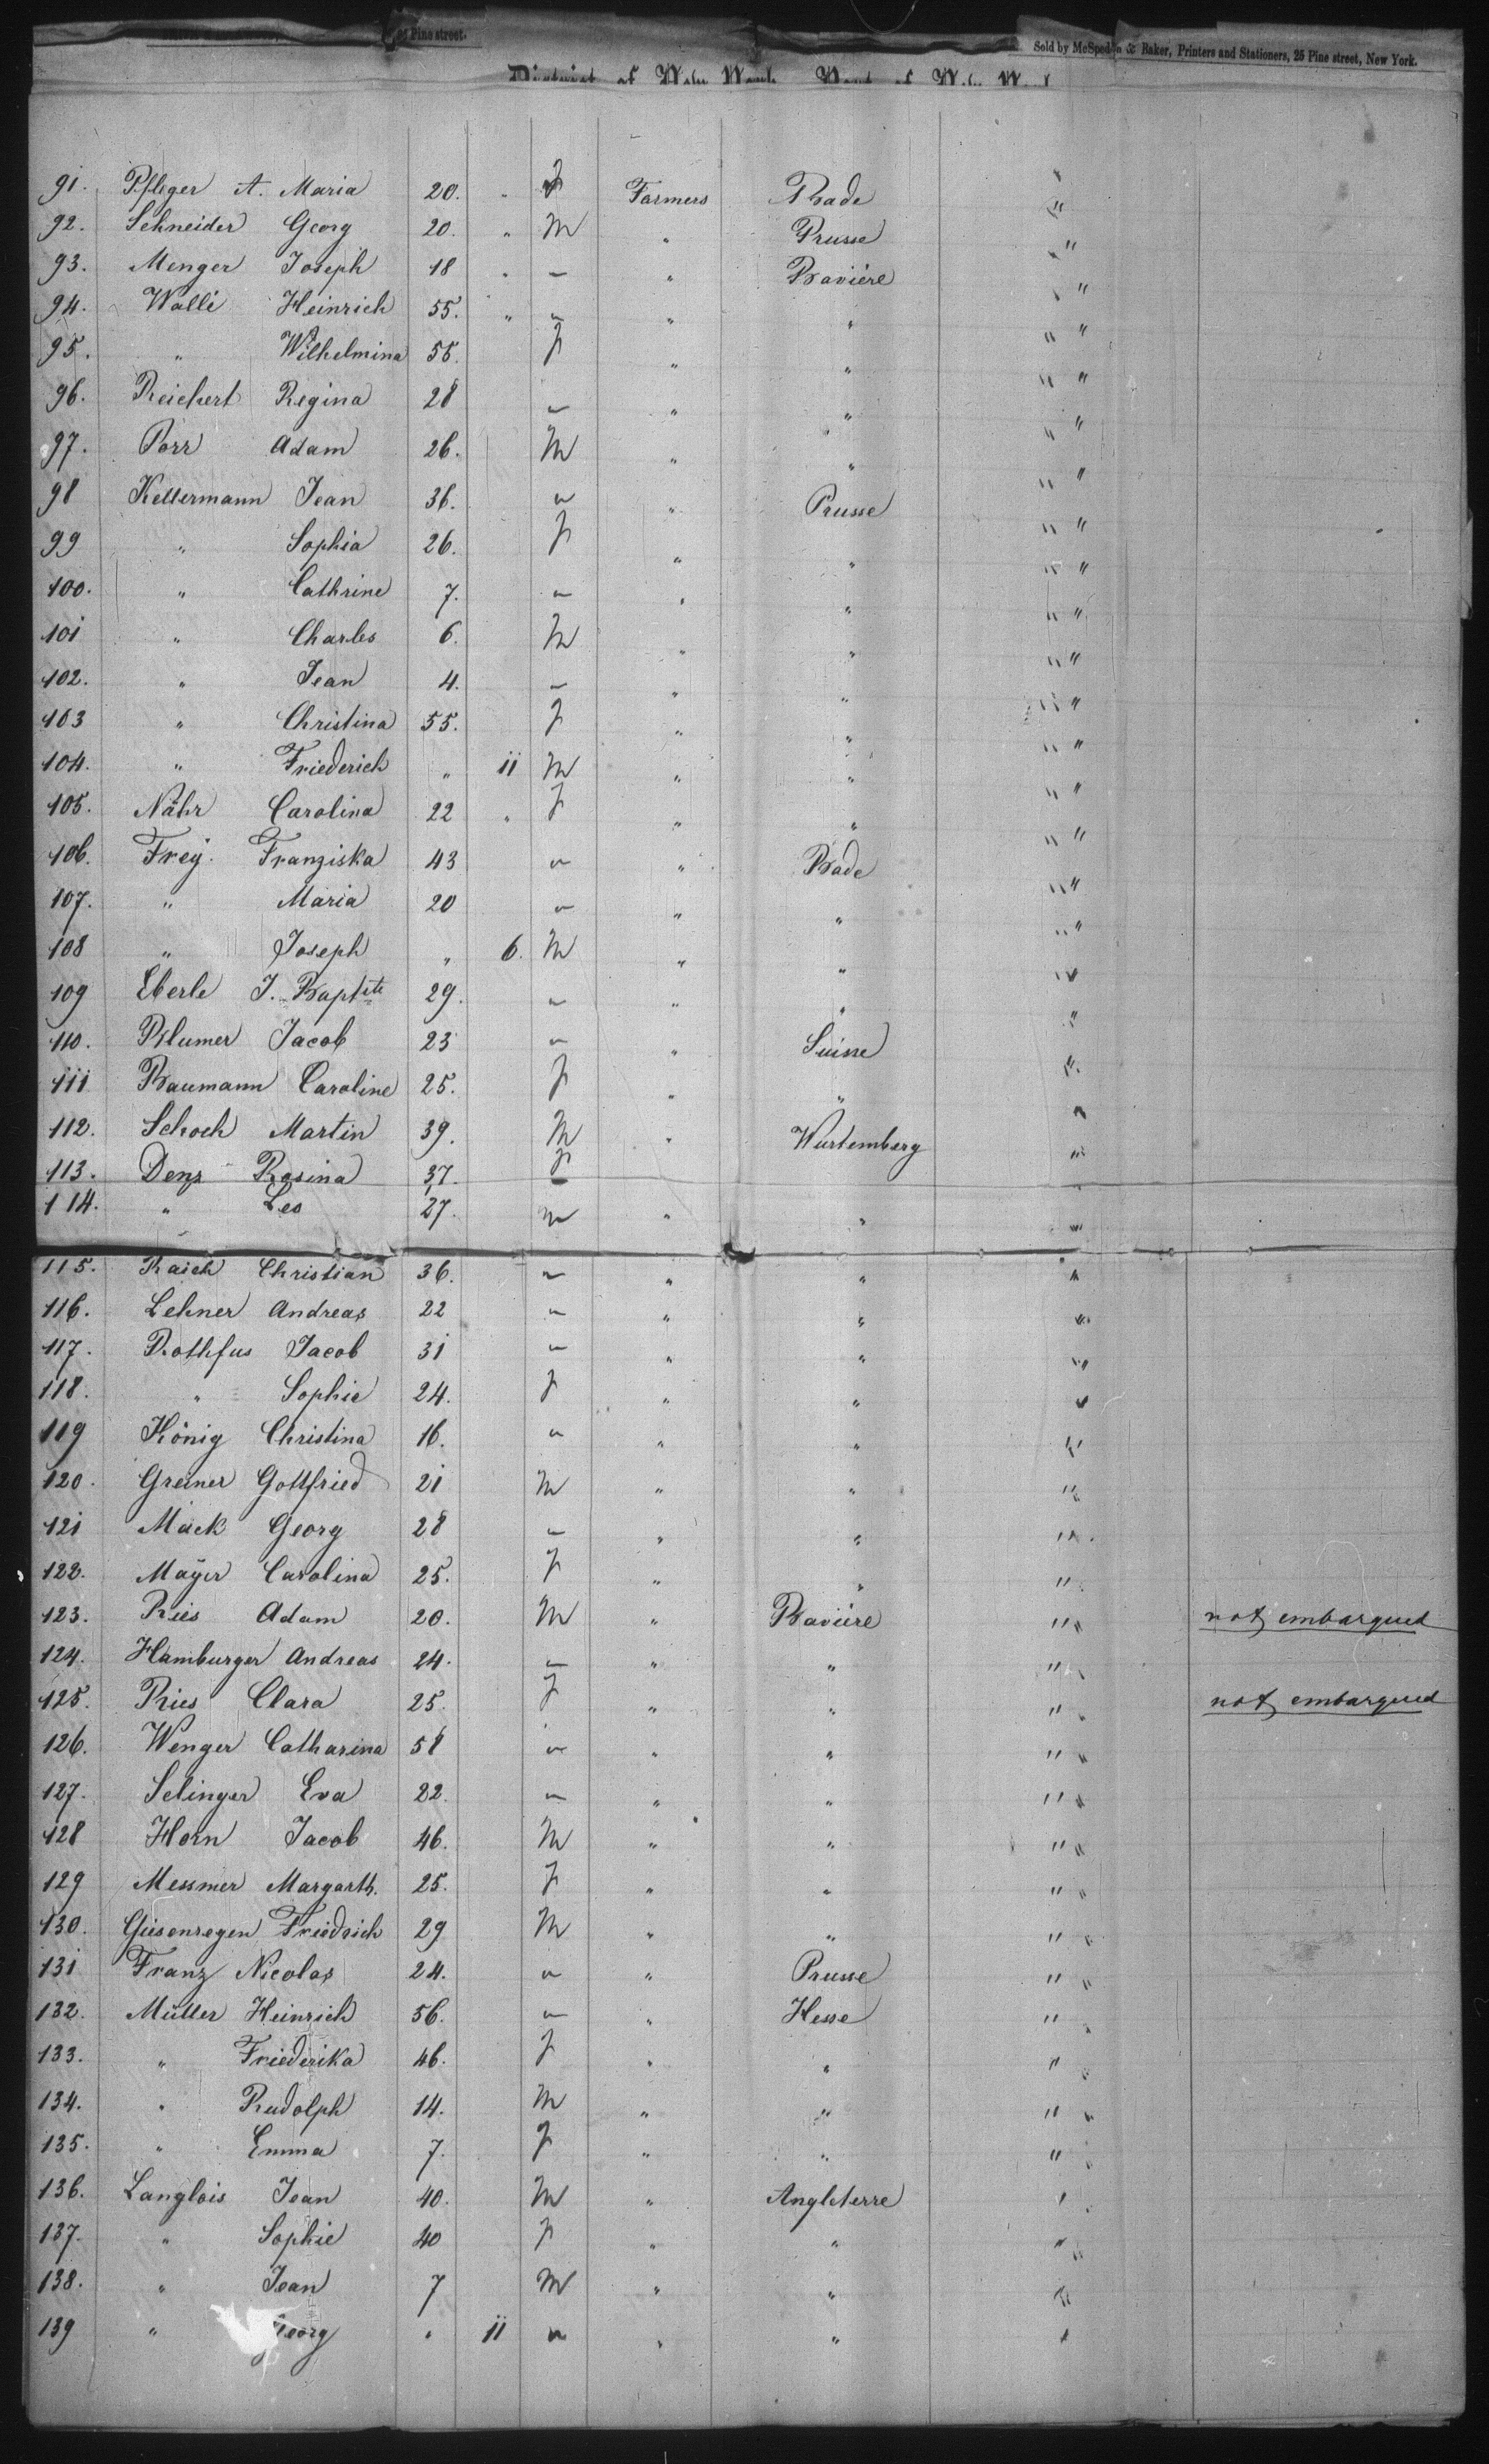 25 Pine street.
Sold by McSpedon & Baker, Printers and Stationers, 25 Pine street, New York.
District of New York Port of New York
91. Pfleger A. Maria 20. " f Farmers Bade "
92. Schneider Georg 20. " M " Prusse " "
93. Menger Joseph 18 " – " Bavière " "
94. Walli Heinrich 55. " – " " " "
95. " Wilhelmina 55. f " " " "
96. Reichert Regina 28 – " " " "
97. Porr Adam 26. M " " " "
98 Kellermann Jean 36. – " Prusse " "
99 " Sophia 26. f " " " "
100. " Cathrine 7. – " " " "
101 " Charles 6. M " " " "
102. " Jean 4. – " " " "
103 " Christina 55. f " " " "
104. " Friederich " 11 M " " " "
105. Nähr Carolina 22 " f " " " "
106. Frey. Franziska 43 – " Bade " "
107. " Maria 20 – " " " "
108 " Joseph " 6. M " " " "
109 Eberle J. Baptste 29. – " " " "
110. Blumer Jacob 23 – " Suisse "
111 Baumann Caroline 25. f " " "
112. Schoch Martin 39. M " Wurtemberg "
113. Denz Rosina 37. f "
114. " Leo 27. m " " "
115. Raich Christian 36. – " " "
116. Lehner Andreas 22 – " " "
117. Rothfus Jacob 31 – " " "
118. " Sophie 24. f " " "
119 König Christina 16. – " " "
120. Greiner Gottfried 21 M " " "
121 Mack Georg 28 – " " "
122. Mayer Carolina 25. f " " "
123. Ries Adam 20. M " Bavière " " not embarqued
124. Hamburger Andreas 24. – " " " "
125. Ries Clara 25. f " " " " not embarqued
126. Wenger Catharina 58 – " " " "
127. Selinger Eva 22. – " " " "
128 Horn Jacob 46. M " " " "
129 Messmer Margarth. 25. f " " " "
130. Giesenregen Friedrich 29 M " " " "
131 Franz Nicolas 24. – " Prusse " "
132. Müller Heinrich 56. – " Hesse " "
133. " Friederika 46. f " " " "
134. " Rudolph 14. M " " " "
135. " Emma 7. f " " " "
136. Langlois Jean 40. M " Angleterre "
137. " Sophie 40 f " " "
138. " Jean 7 M " " "
139 " Georg " 11 – " " "